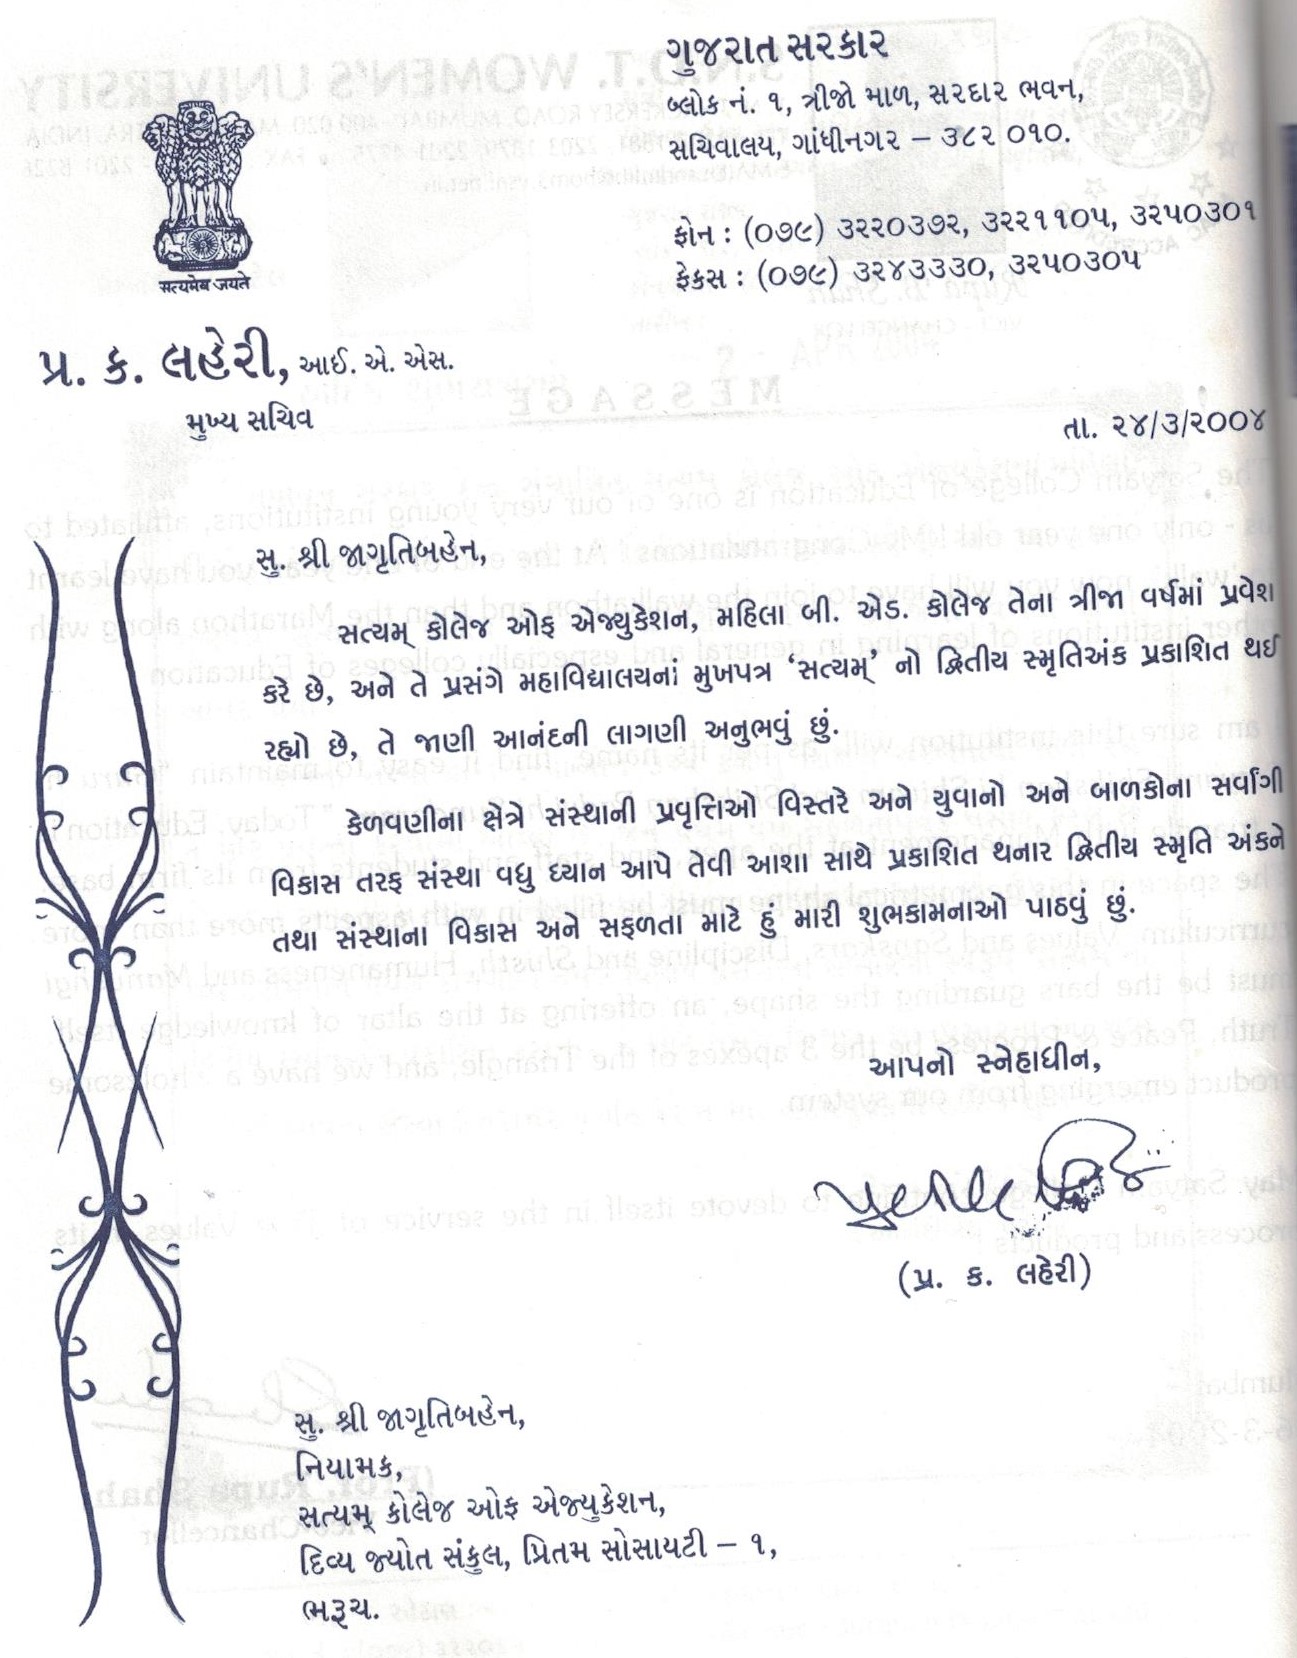 ગુજરાત સરકાર
બ્લોક નં. ૧, ત્રીજો માળ, સરદાર ભવન,
સચિવાલય, ગાંધીનગર – ૩૮૨ ૦૧૦.
ફોન : (૦૭૯) ૩૨૨૦૩૭૨, ૩૨૨૧૧૦૫, ૩૨૫૦૩૦૧
ફેકસ : (૦૭૯) ૩૨૪૩૩૩૦, ૩૨૫૦૩૦૫
सत्यमेव जयते
પ્ર. ક. લહેરી, આઈ. એ. એસ.
મુખ્ય સચિવ
તા. ૨૪/૩/૨૦૦૪
સુ. શ્રી જાગૃતિબહેન,
સત્યમ્ કોલેજ ઓફ એજ્યુકેશન, મહિલા બી. એડ. કોલેજ તેના ત્રીજા વર્ષમાં પ્રવેશ
કરે છે, અને તે પ્રસંગે મહાવિદ્યાલયનાં મુખપત્ર ‘સત્યમ્’ નો દ્વિતીય સ્મૃતિઅંક પ્રકાશિત થઈ
રહ્યો છે, તે જાણી આનંદની લાગણી અનુભવું છું.
કેળવણીના ક્ષેત્રે સંસ્થાની પ્રવૃત્તિઓ વિસ્તરે અને યુવાનો અને બાળકોના સર્વાંગી
વિકાસ તરફ સંસ્થા વધુ ધ્યાન આપે તેવી આશા સાથે પ્રકાશિત થનાર દ્વિતીય સ્મૃતિ અંકને
તથા સંસ્થાના વિકાસ અને સફળતા માટે હું મારી શુભકામનાઓ પાઠવું છું.
આપનો સ્નેહાધીન,
(પ્ર. ક. લહેરી)
સુ. શ્રી જાગૃતિબહેન,
નિયામક,
સત્યમ્ કોલેજ ઓફ એજ્યુકેશન,
દિવ્ય જ્યોત સંકુલ, પ્રિતમ સોસાયટી – ૧,
ભરૂચ.